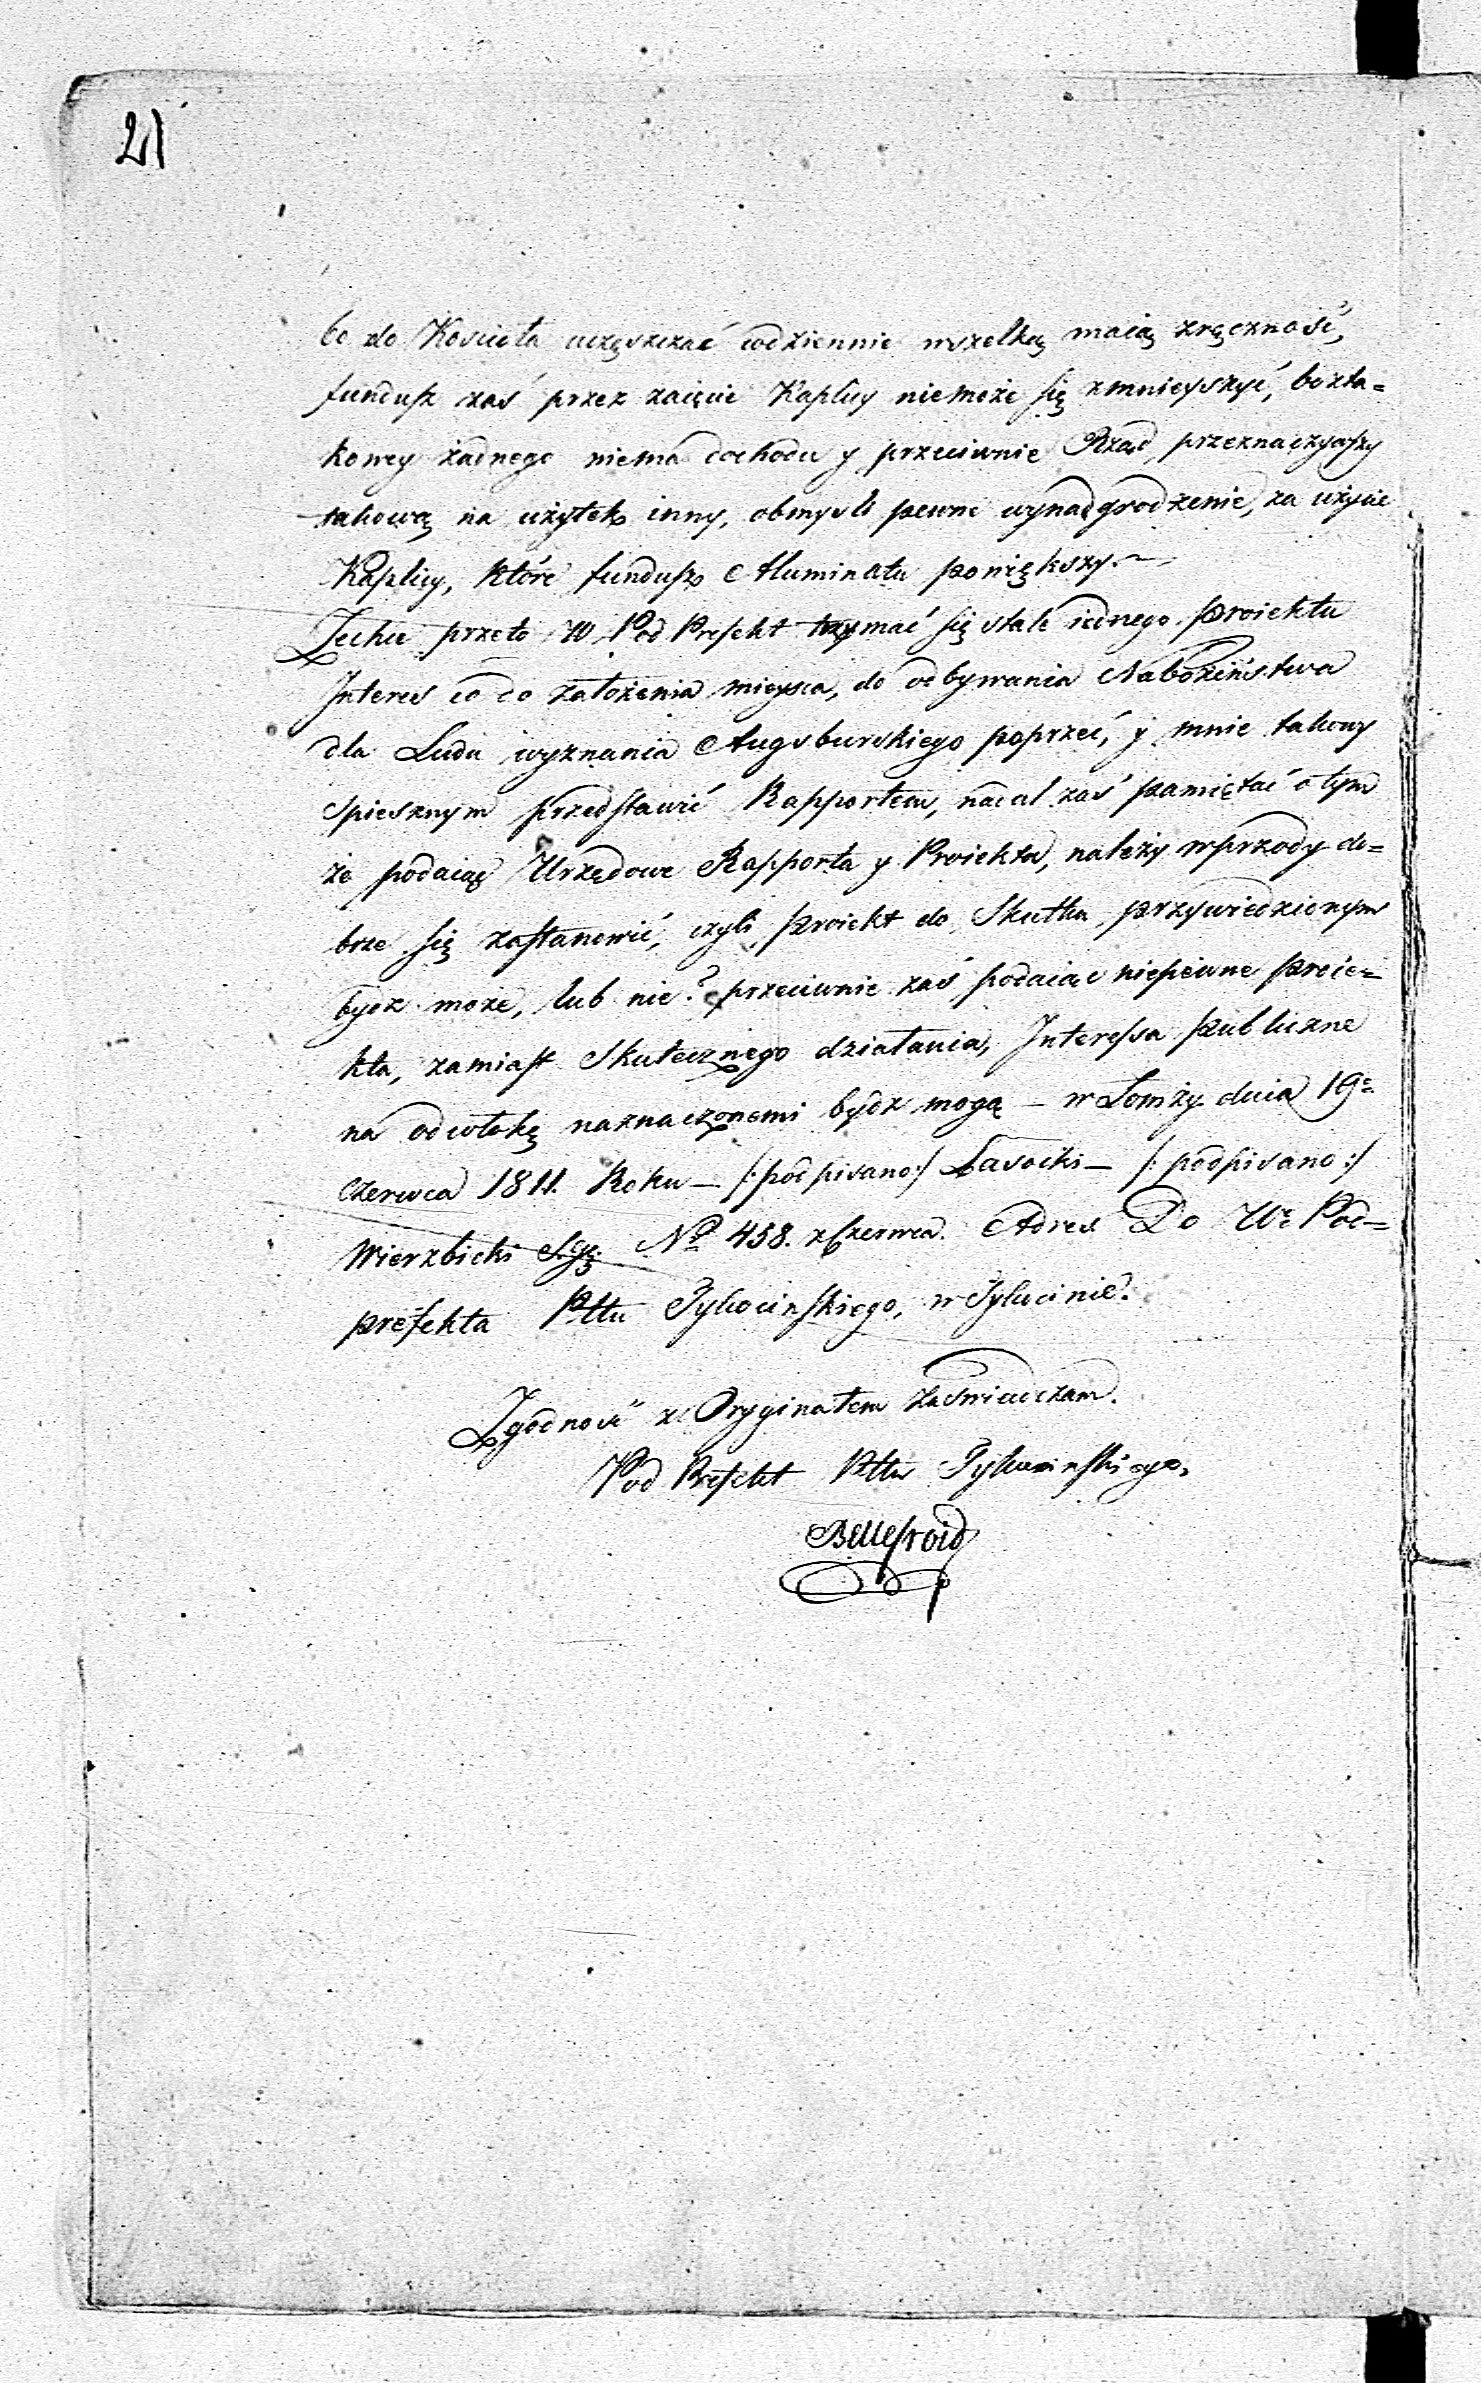 21
bo do Kościoła uczęszczać codziennie wszelką maią zręczność,
fundusz zaś przez zaięcie Kaplicy niemoże się zmnieyszyć, bo z ta=
kowey żadnego niema dochodu y przeciwnie Rząd, przeznaczywszy
takową na użytek inny, obmyśli pewne wynadgrodzenie, za użycie
Kaplicy, które fundusz Alluminatu powiększy.
Zechce przeto W. Pod Prefekt trzymać się stale iednego proiektu
Interes co do założenia mieysca, do odbywania Nabożeństwa
dla Ludu wyznania Augsburskiego poprzeć, y mnie takowy
spiesznym przedstawić Rapportem, nadal zaś pamiętać o tym
że podaiąc Urzędowe Rapporta y Proiekta, należy wprzody do=
brze się zastanowić, czyli proiekt do Skutku przywiedzionym
bydz może, lub nie? przeciwnie zaś podaiąc niepewne proie=
kta, zamiast Skutecznego działania, Interessa publiczne
na odwłokę naznaczonemi bydz mogą – w Łomży dnia 19º
Czerwca 1811. Roku – /: podpisano :/ Lasocki – /: podpisano :/
Wierzbicki S. Nº 458. z Czerwca. Adres Do Wº Pod=
prefekta Pttu Tykocinskiego, w Tykocinie.
Zgodność z Oryginałem zaświadczam.
Pod Prefekt Pttu Tykocinskiego,
Bellefroid